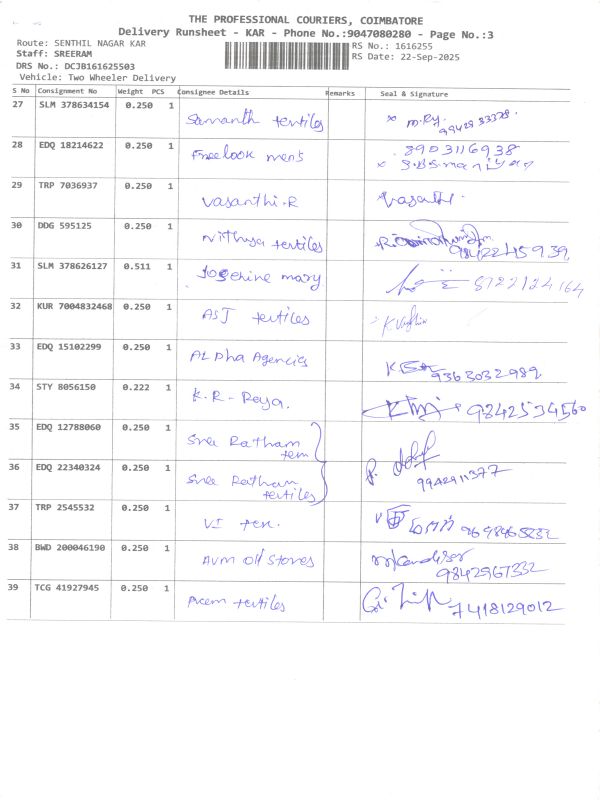 THE PROFESSIONAL COURIERS, COIMBATORE
Delivery Runsheet - KAR - Phone No.:9047080280 - Page No.:3
Route: SENTHIL NAGAR KAR
RS No.: 1616255
Staff: SREERAM
RS Date: 22-Sep-2025
DRS No.: DCJB161625503
Vehicle: Two Wheeler Delivery
S No Consignment No Weight PCS Consignee Details Remarks Seal & Signature
27 SLM 378634154 0.250 1 textiles
28 EDQ 18214622 0.250 1 Freelook men's 8903116938
29 TRP 7036937 0.250 1 Vasanthi.R
30 DDG 595125 0.250 1 Nithya textiles
31 SLM 378626127 0.511 1 Josephine mary 8722124164
32 KUR 7004832468 0.250 1 AST textiles
33 EDQ 15102299 0.250 1 ALPha Agencies 9363032989
34 STY 8056150 0.222 1 K.R- 9842534560
35 EDQ 12788060 0.250 1 Sree Ratham
tem
36 EDQ 22340324 0.250 1 Sree Ratham
textiles 9942911377
37 TRP 2545532 0.250 1 VI tex.
38 BWD 200046190 0.250 1 AVM Oil Stores
9842967332
39 TCG 41927945 0.250 1 textiles 7418129012